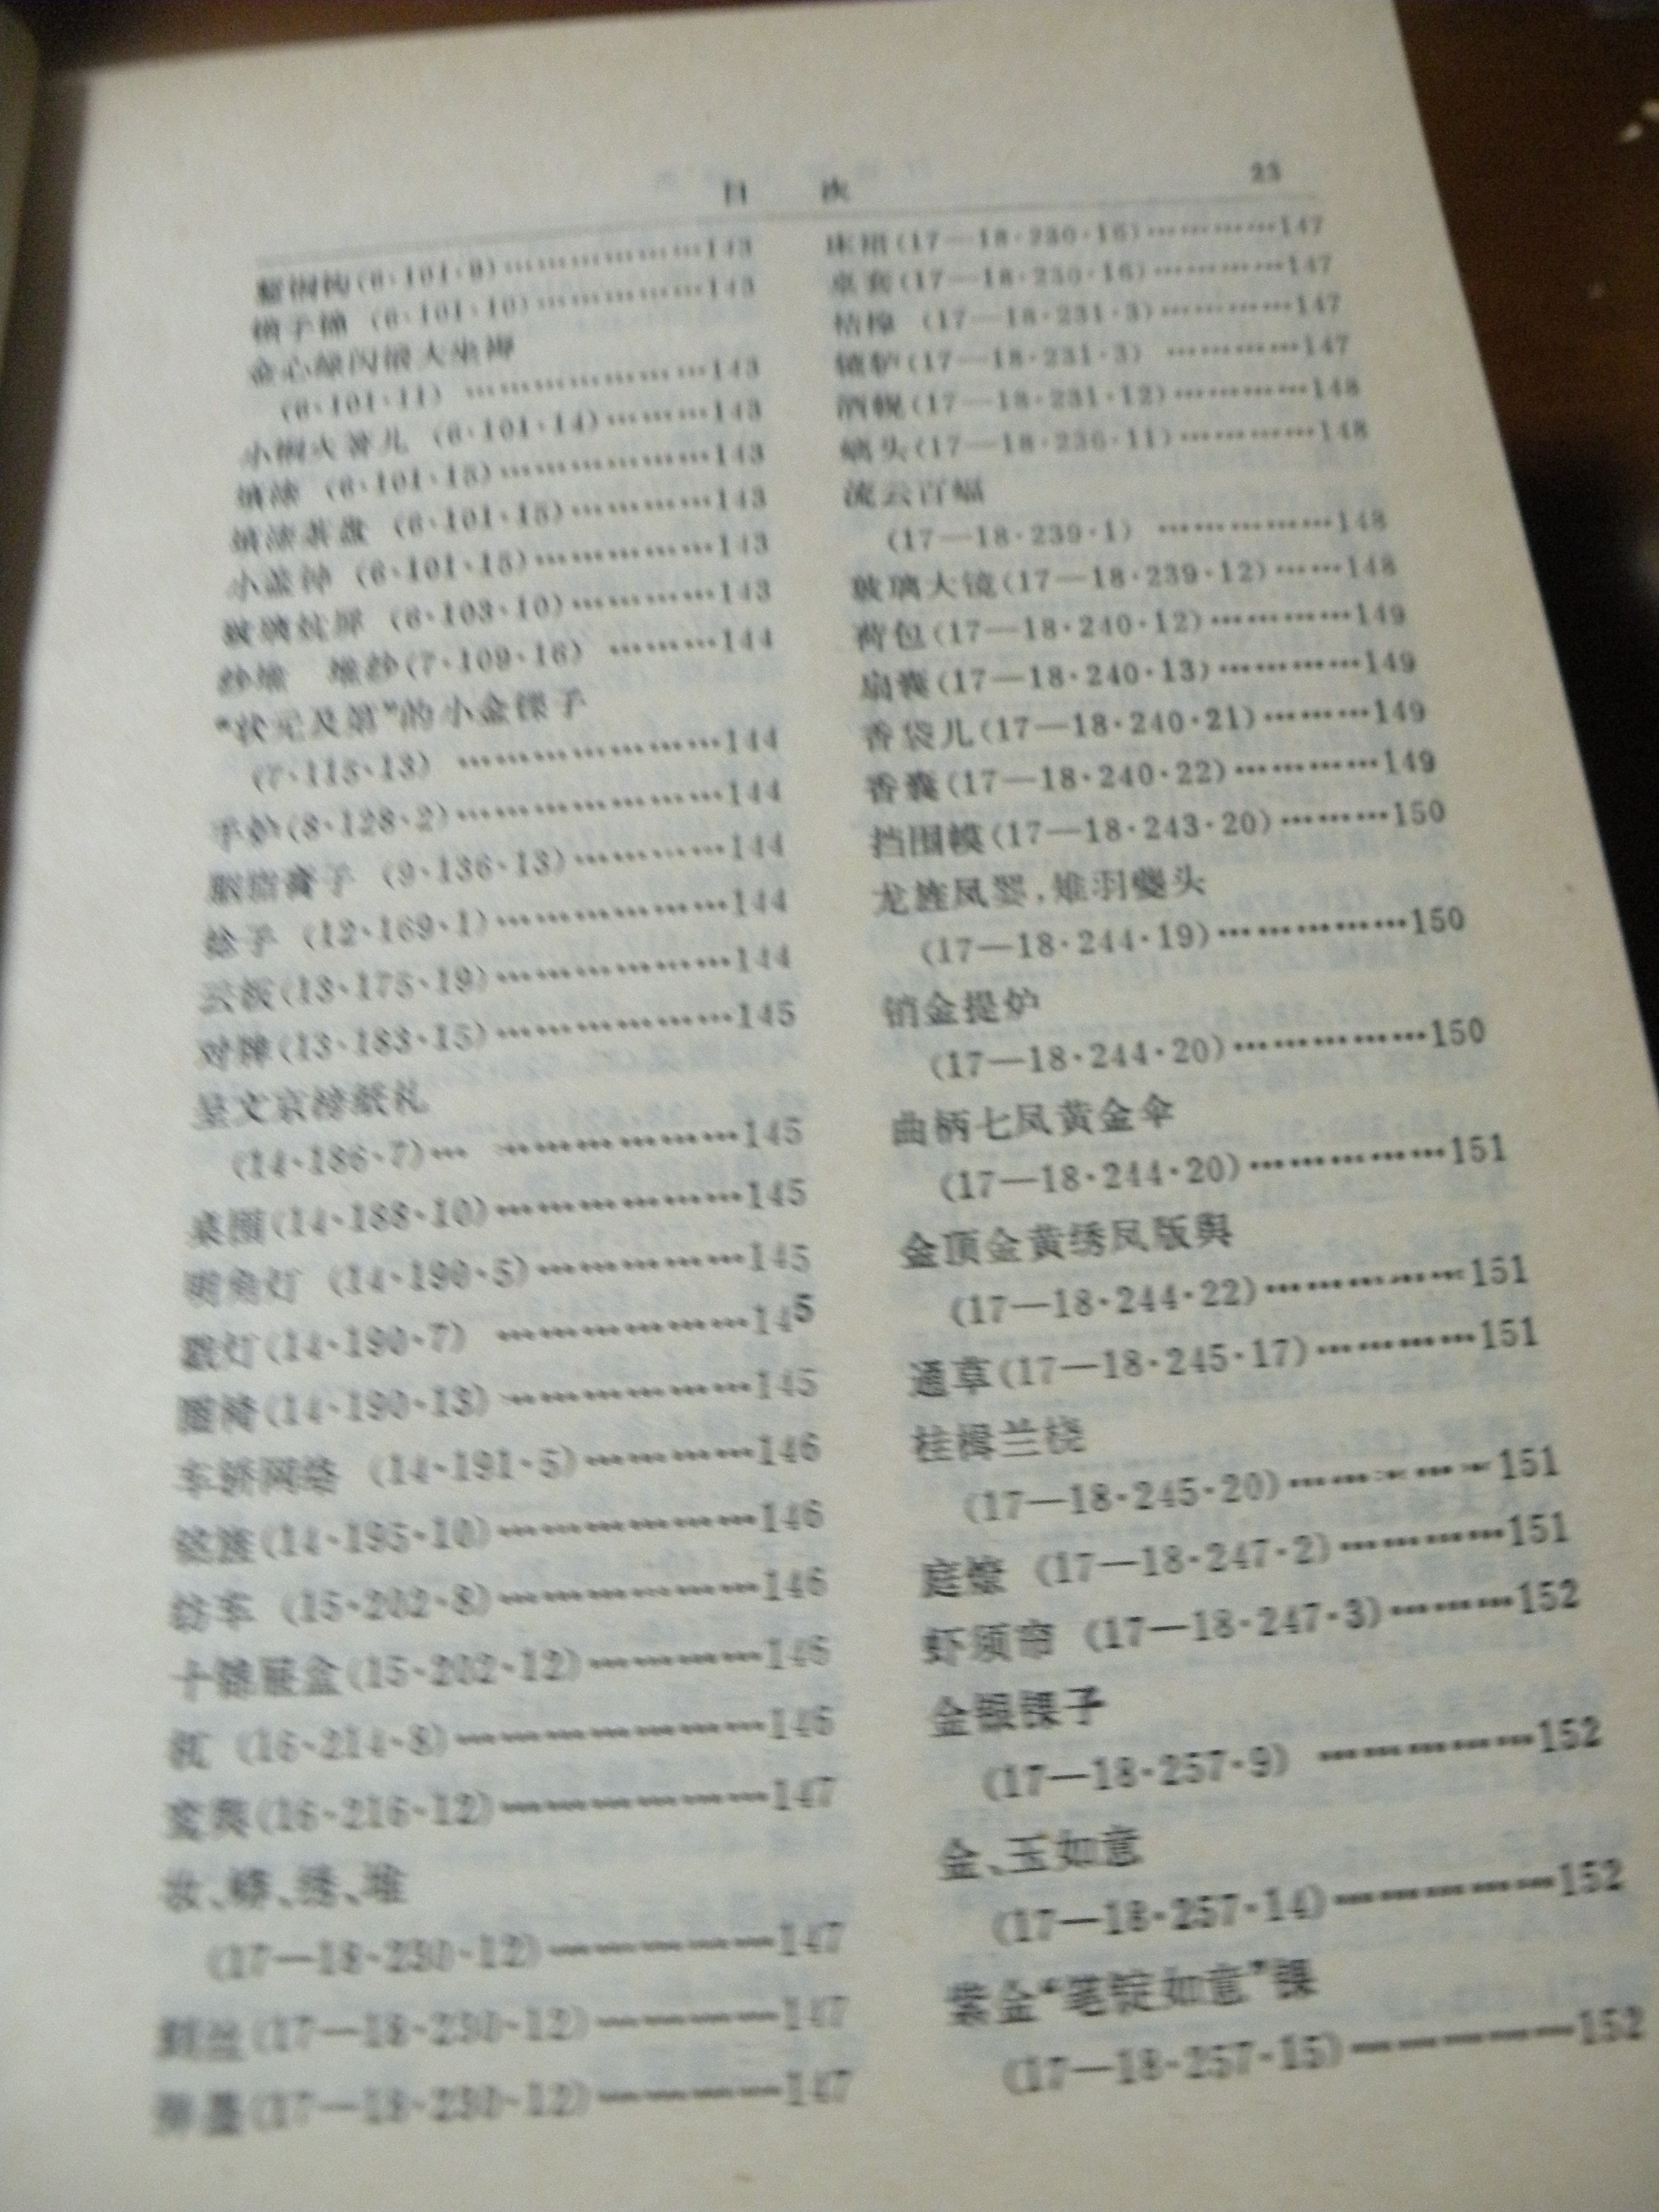 目 次 23
(6·101·9)……………………143
(6·101·10)…………………143
(6·101·11) …………………143
(6·101·14)………143
填漆 (6·101·15)…………………143
填漆茶盘 (6·101·15)……………143
小盖钟 (6·101·15)………………143
玻璃炕屏 (6·103·10)……………143
纱堆 堆纱(7·109·16) ………144
“状元及第”的小金锞子
(7·115·13) ……………………144
手炉(8·128·2)……………………144
胭脂膏子 (9·136·13)……………144
(12·169·1)…………………144
云板(13·175·19)…………………144
对牌(13·183·15)…………………145
呈文京榜纸札
(14·186·7)… ………………145
桌围(14·188·10)…………………145
明角灯 (14·190·5)………………145
戳灯(14·190·7) …………………145
围椅(14·190·13)…………………145
车轿网络 (14·191·5)……………146
铭旌(14·195·10)…………………146
纺车 (15·202·8)…………………146
十锦屉盒(15·202·12)……………146
(16·214·8)……………………146
(16·216·12)…………………147
妆、蟒、绣、堆
(17—18·230·12)………………147
(17—18·230·12)……………147
弹墨(17—18·230·12)……………147
床裙(17—18·230·16)……………147
桌套(17—18·230·16)……………147
桔槔 (17—18·231·3)……………147
辘轳(17—18·231·3) ……………147
酒幌(17—18·231·12)……………148
螭头(17—18·236·11)……………148
流云百蝠
(17—18·239·1) ………………148
玻璃大镜(17—18·239·12)……148
荷包(17—18·240·12)……………149
扇囊(17—18·240·13)……………149
香袋儿(17—18·240·21)………149
香囊(17—18·240·22)……………149
挡围幙(17—18·243·20)………150
龙旌凤翣,雉羽夔头
(17—18·244·19)………………150
销金提炉
(17—18·244·20)………………150
曲柄七凤黄金伞
(17—18·244·20)………………151
金顶金黄绣凤版舆
(17—18·244·22)………………151
通草(17—18·245·17)……………151
桂楫兰桡
(17—18·245·20)………………151
庭燎 (17—18·247·2)……………151
虾须帘 (17—18·247·3)………152
金银锞子
(17—18·257·9) ………………152
金、玉如意
(17—18·257·14)………………152
紫金“笔锭如意”锞
(17—18·257·15)………………152